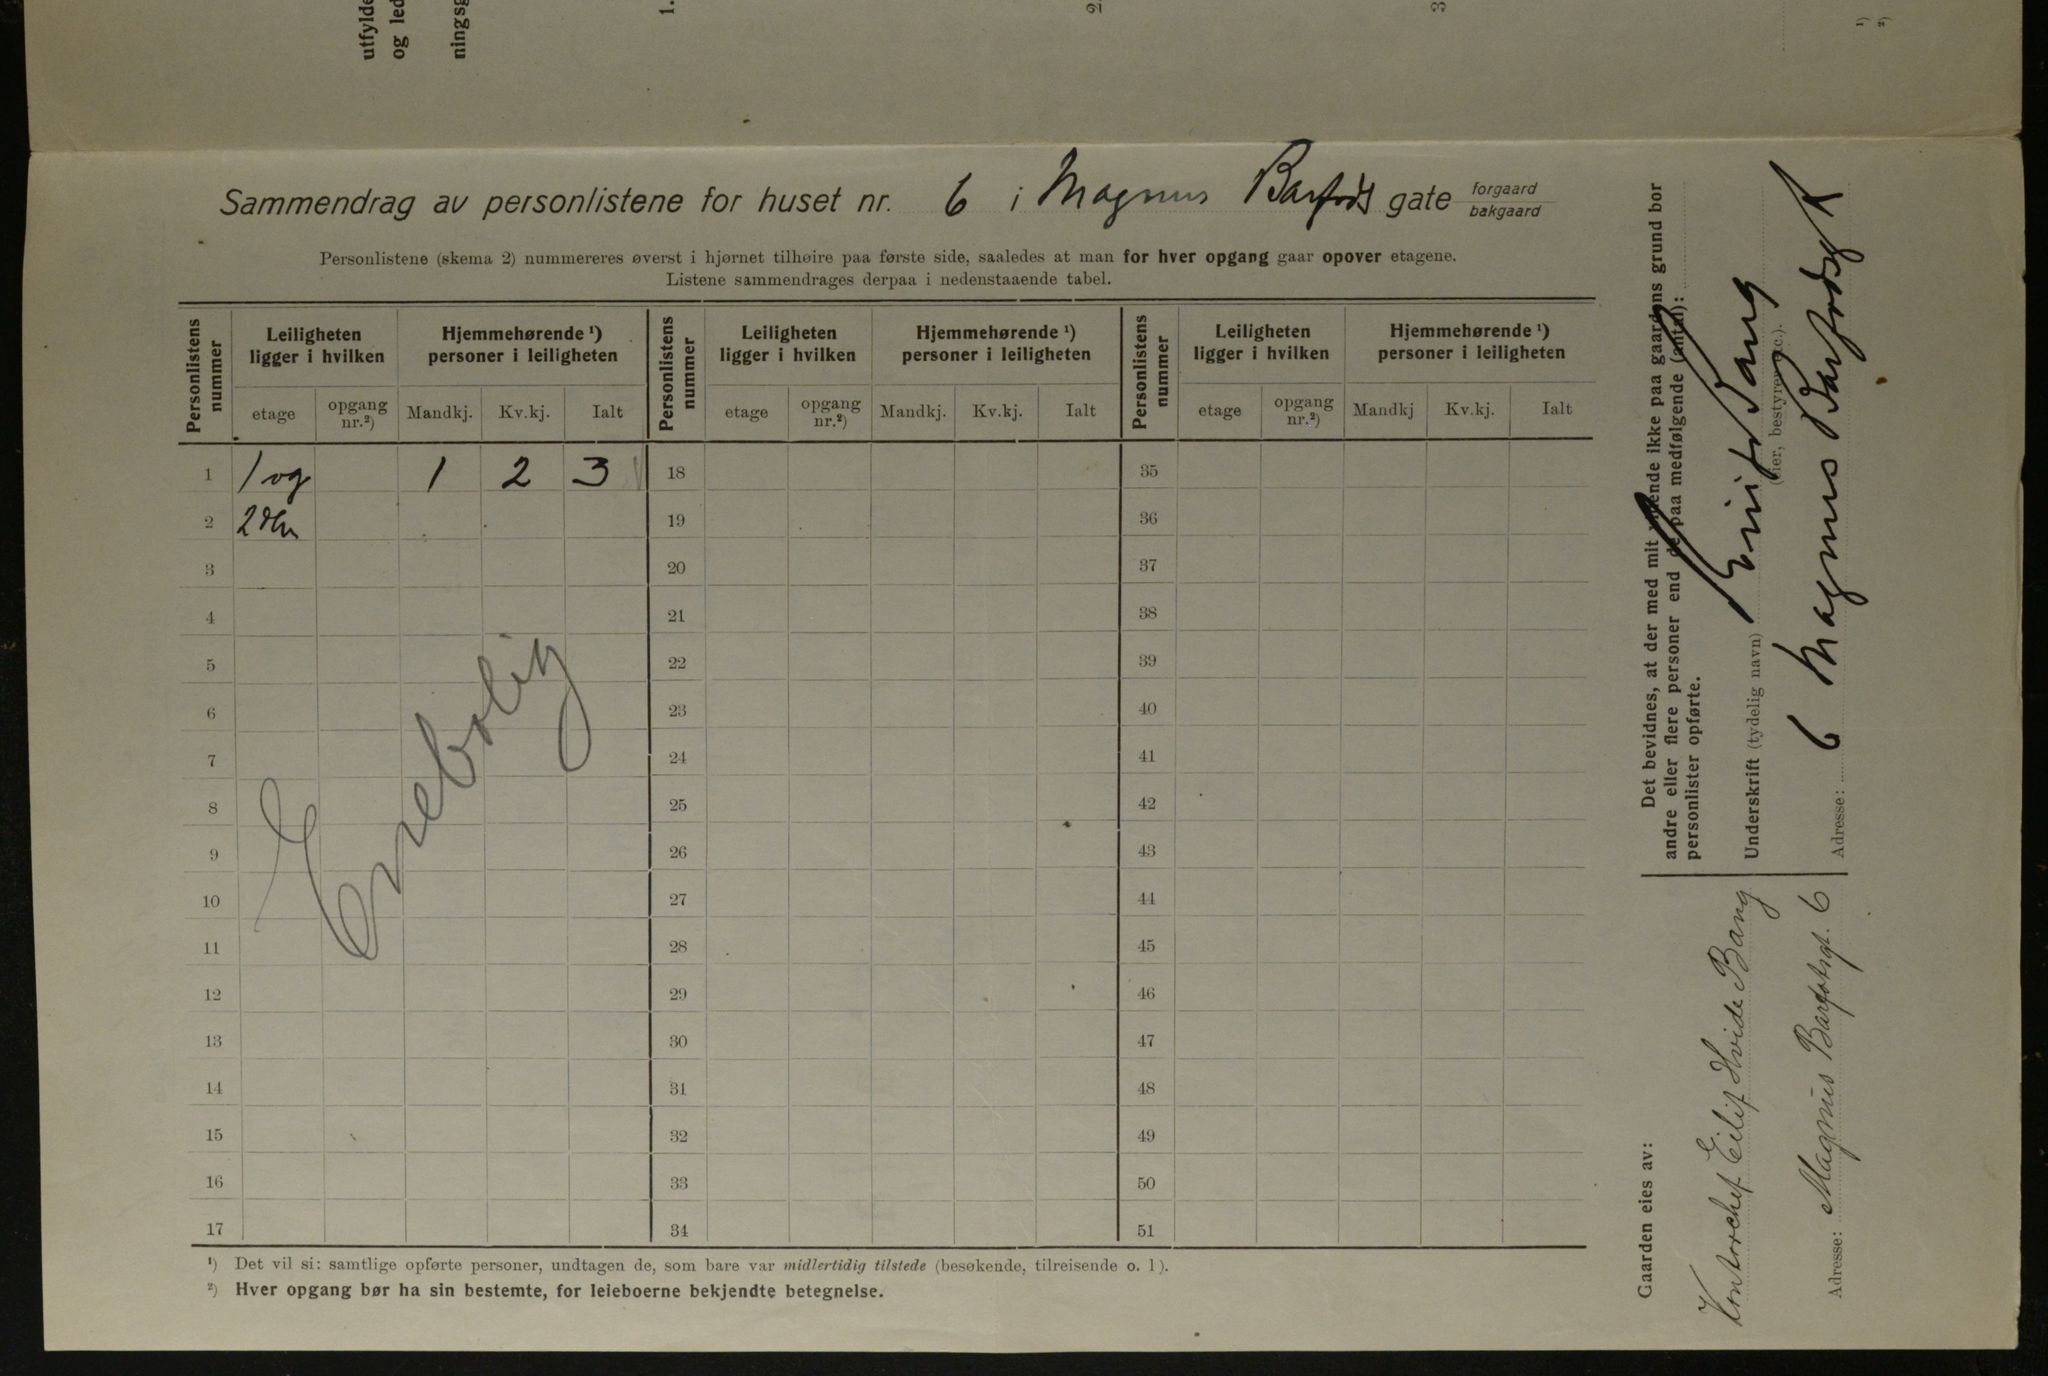 utfylde
og led
ningsg
1.
2.
3
¹)
²)
Sammendrag av personlistene for huset nr. 6 i Magnus Barfods gate forgaard
bakgaard
Personlistene (skema 2) nummereres øverst i hjørnet tilhøire paa første side, saaledes at man for hver opgang gaar opover etagene.
Listene sammendrages derpaa i nedenstaaende tabel.
Personlistens nummer Leiligheten ligger i hvilken Hjemmehørende ¹) personer i leiligheten Personlistens nummer Leiligheten ligger i hvilken Hjemmehørende ¹) personer i leiligheten Personlistens nummer Leiligheten ligger i hvilken Hjemmehørende ¹) personer i leiligheten
etage opgang nr.²) Mandkj. Kv.kj. Ialt etage opgang nr.²) Mandkj. Kv.kj. Ialt etage opgang nr.²) Mandkj Kv.kj. Ialt
1 1 og 1 2 3 18 35
2 2den 19 36
3 20 37
4 21 38
5 22 39
6 23 40
7 24 41
8 25 42
9 26 43
10 27 44
11 28 45
12 29 46
13 30 47
14 31 48
15 32 49
16 33 50
17 34 51
Enebolig
¹) Det vil si: samtlige opførte personer, undtagen de, som bare var midlertidig tilstede (besøkende, tilreisende o. l).
²) Hver opgang bør ha sin bestemte, for leieboerne bekjendte betegnelse.
Det bevidnes, at der med mit vidende ikke paa gaardens grund bor
andre eller flere personer end de paa medfølgende (antal):
personlister opførte.
Underskrift (tydelig navn) Eilif Bang
(eier, bestyrer etc.).
Adresse: 6 Magnus Barfodsgt
Gaarden eies av:
Kontorchef Eilif Hvide Bang
Adresse: Magnus Barfotsgt. 6